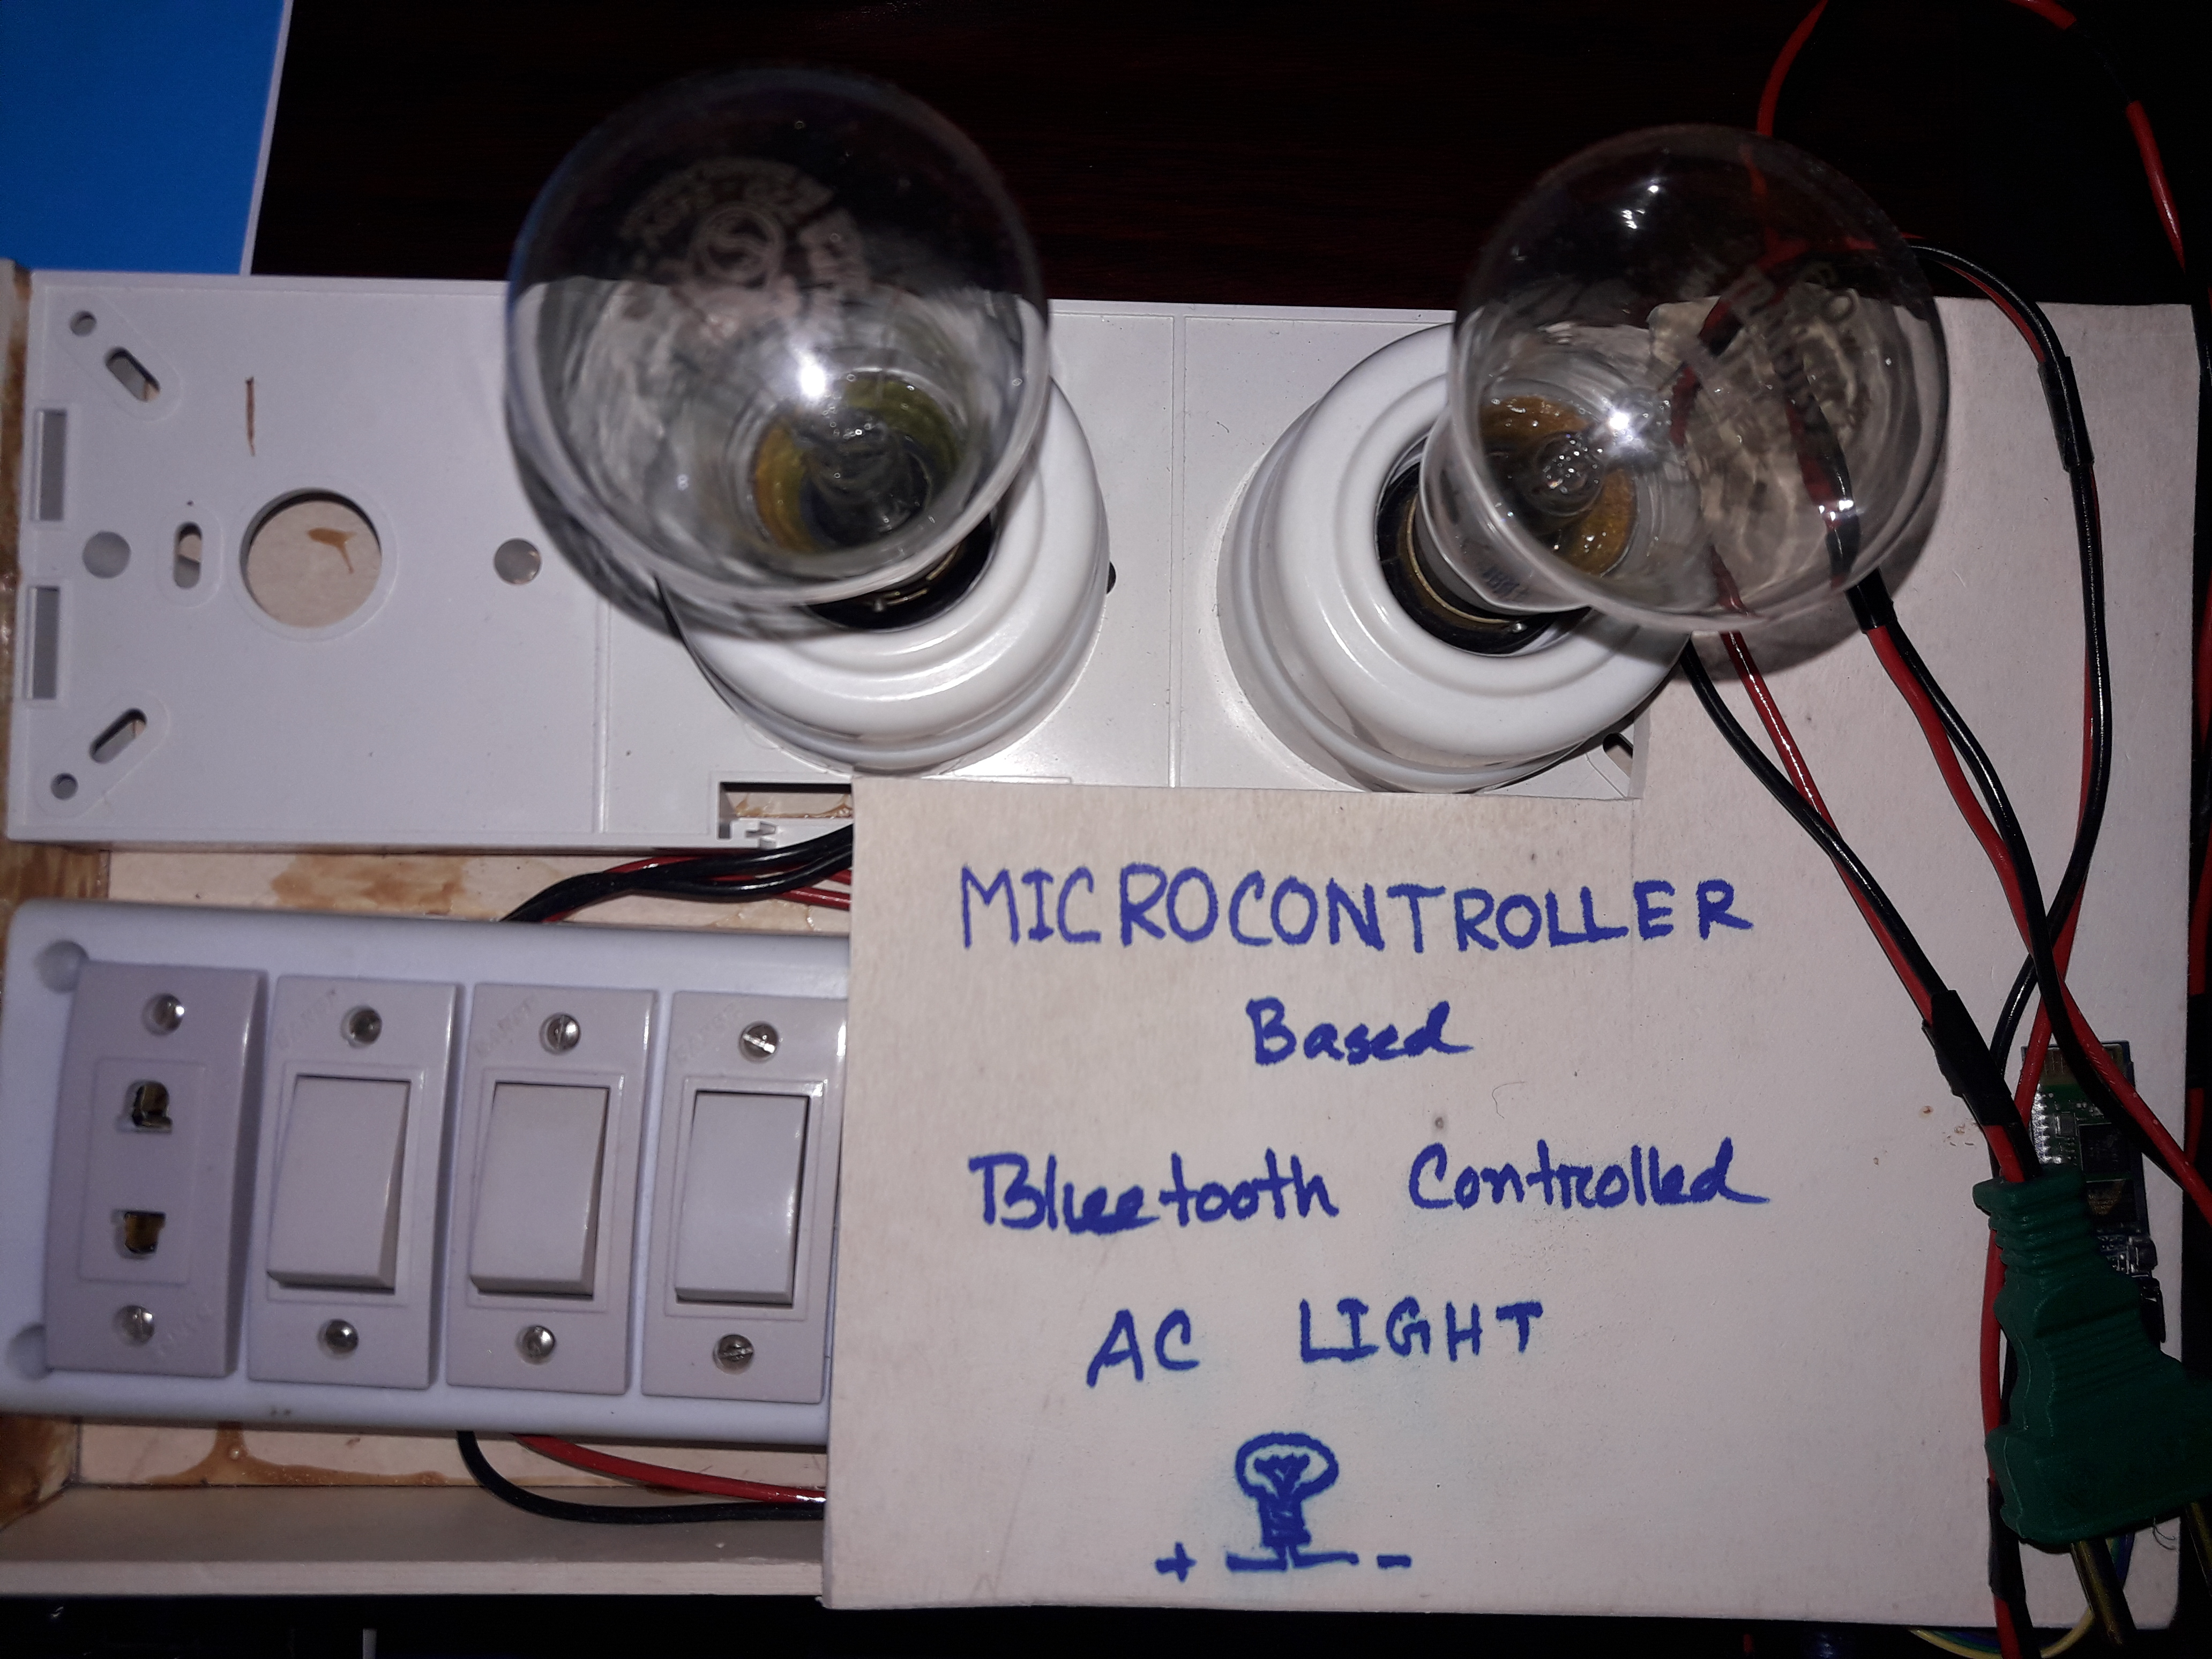 MICROCONTROLLER
Based
Bluetooth Controlled
AC LIGHT
+ -